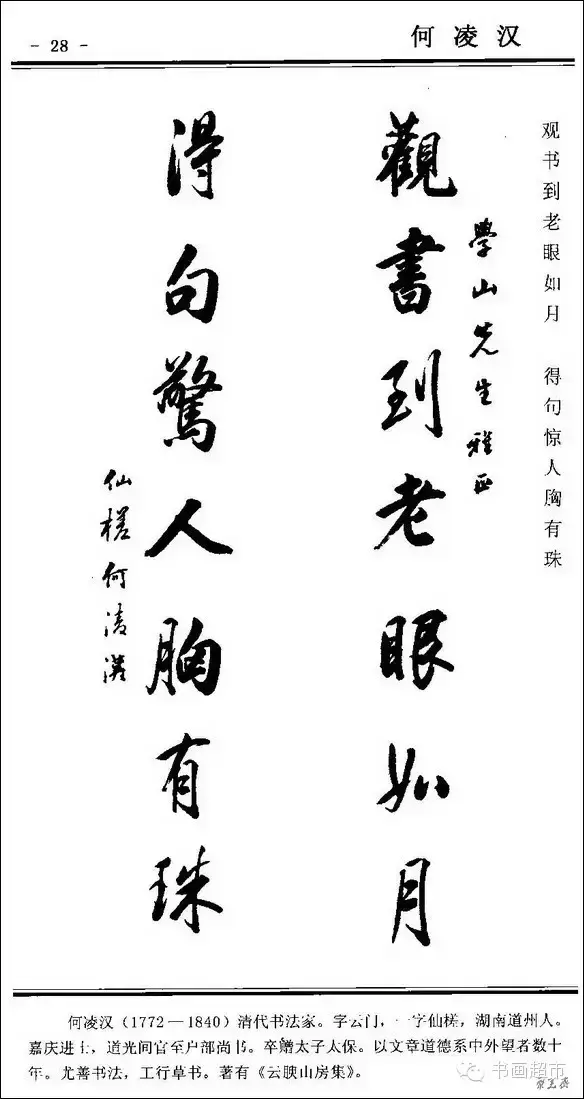 - 28 -
何凌汉
观书到老眼如月 得句惊人胸有珠
學山先生雅正
觀書到老眼如月
得句驚人胸有珠
仙槎何凌漢
何凌汉（1772—1840）清代书法家。字云门，一字仙槎，湖南道州人。
嘉庆进士，道光间官至户部尚书。卒赠太子太保。以文章道德系中外望者数十
年。尤善书法，工行草书。著有《云腴山房集》。
书画超市